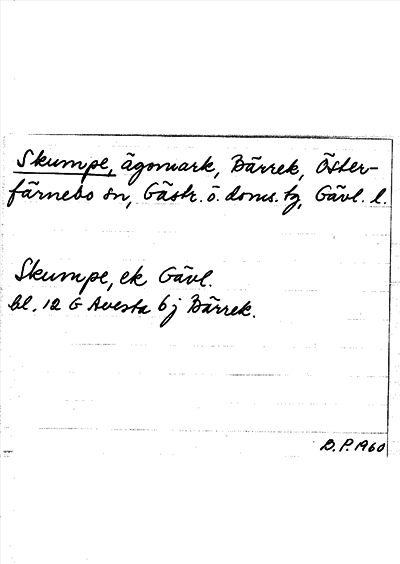 Skumpe, ägomark, Bärrek, Öster-
färnebo sn, Gästr. ö. doms. tg, Gävl. l.
Skumpe, ek Gävl.
bl. 12 G Avesta 6 j Bärrek.
B.P. 1960